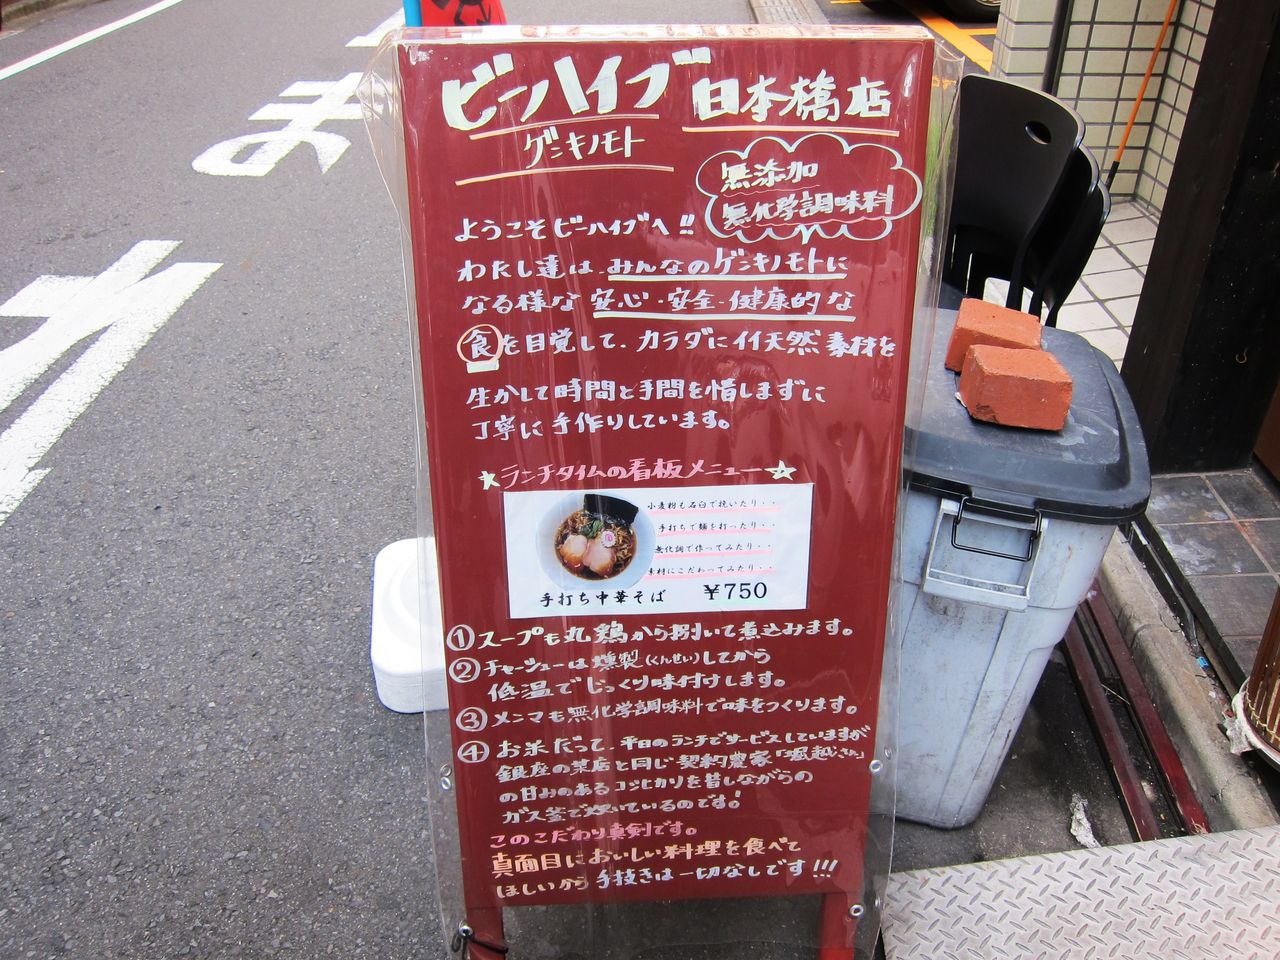 ビーハイブ 日本橋店
ゲンキノモト
無添加
無化学調味料
ようこそビーハイブへ!!
わたし達は みんなのゲンキノモトに
なる様な 安心・安全・健康的な
食を目覚して、カラダにイイ天然素材を
生かして時間と手間を惜しまずに
丁寧に手作りしています。
★ランチタイムの看板メニュー☆
小麦粉も石臼で挽いたり・・
手打ちで麺を打ったり・・
無化調で作ってみたり・・
素材にこだわってみたり・・
手打ち中華そば ¥750
①スープも丸鶏から捌いて煮込みます。
②チャーシューは燻製(くんせい)してから
低温でじっくり味付けします。
③メンマも無化学調味料で味をつくります。
④お米だって、平日のランチでサービスしていますが
銀座の某店と同じ契約農家「堀越さん」
の甘みのあるコシヒカリを昔しながらの
ガス釜で炊いているのです!
このこだわり真剣です。
真面目においしい料理を食べて
ほしいから 手抜きは一切なしです!!!